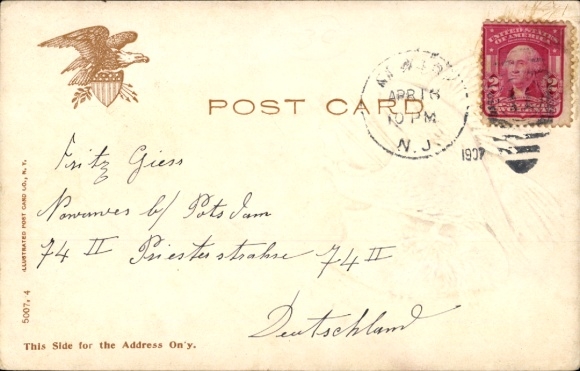 UNITED STATES
OF AMERICA
APR 18
10 PM
N.J.
1907
POST CARD
Fritz Giess
Nowawes b/ Potsdam
74 II Priesterstrahse 74 II
Deutschland
ILLUSTRATED POST CARD CO., N.Y.
5007, 4
This Side for the Address On'y.